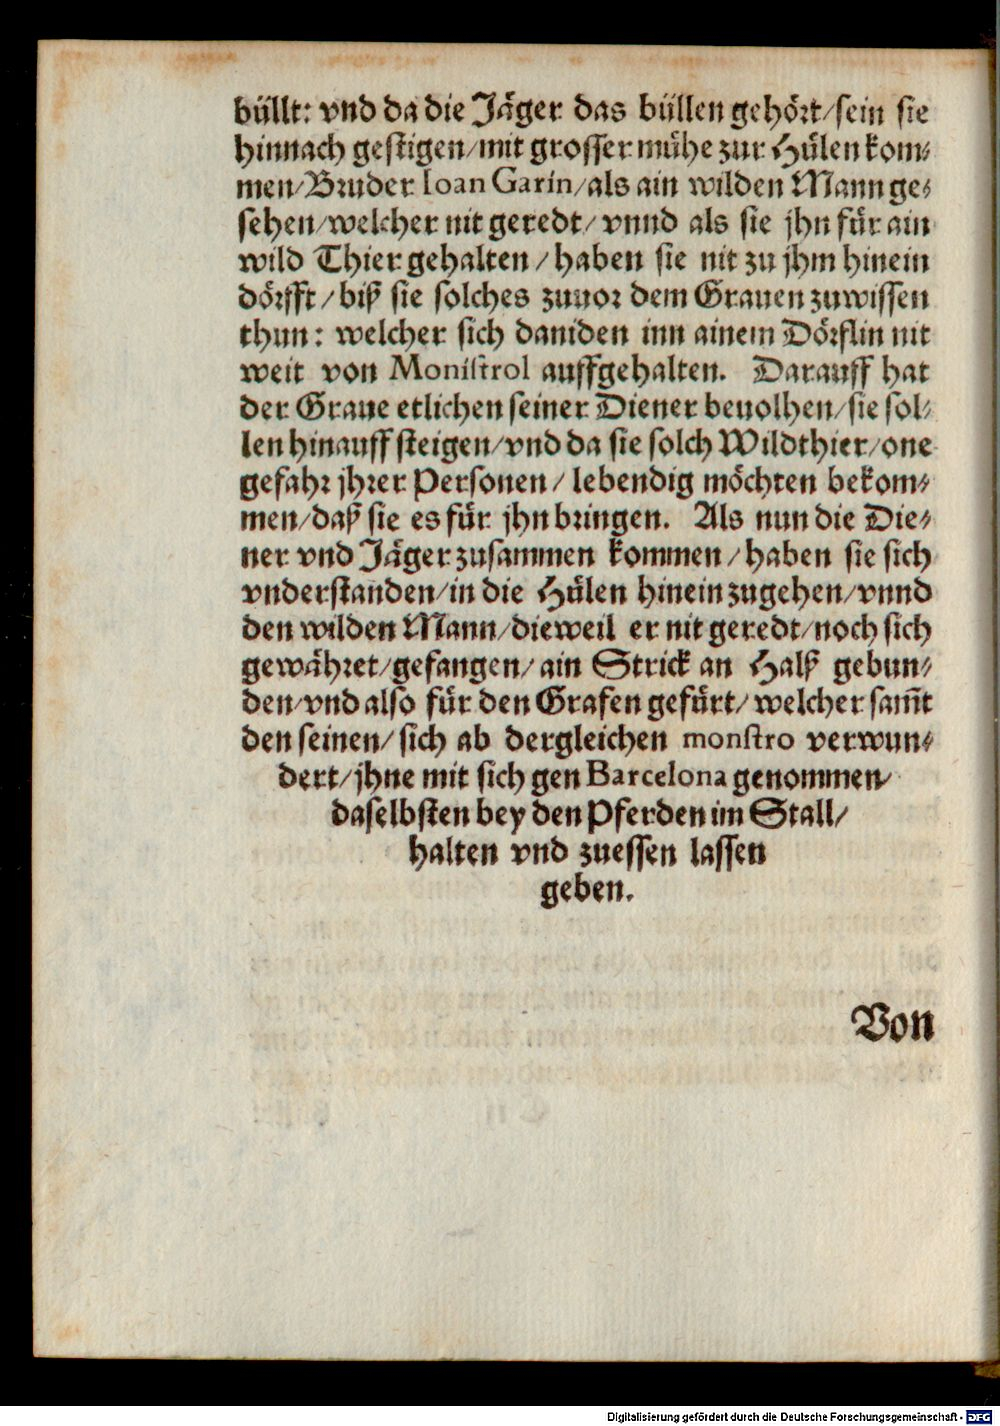 büllt: vnd da die Jäger das büllen gehört/sein sie
hinnach gestigen/mit grosser mühe zur Hülen kom⸗
men/Bruder Ioan Garin/als ain wilden Mann ge⸗
sehen/welcher nit geredt/vnnd als sie jhn für ain
wild Thier gehalten/haben sie nit zu jhm hinein
dörfft/biß sie solches zuuor dem Grauen zuwissen
thun: welcher sich daniden inn ainem Dörflin nit
weit von Monistrol auffgehalten. Darauff hat
der Graue etlichen seiner Diener beuolhen/sie sol⸗
len hinauff steigen/vnd da sie solch Wildthier/one
gefahr jhrer Personen/lebendig möchten bekom⸗
men/daß sie es für jhn bringen. Als nun die Die⸗
ner vnd Jäger zusammen kommen/haben sie sich
vnderstanden/in die Hülen hinein zugehen/vnnd
den wilden Mann/dieweil er nit geredt/noch sich
gewähret/gefangen/ain Strick an Halß gebun⸗
den/vnd also für den Grafen gefürt/welcher sam̄t
den seinen/sich ab dergleichen monstro verwun⸗
dert/jhne mit sich gen Barcelona genommen/
daselbsten bey den Pferden im Stall/
halten vnd zuessen lassen
geben.
Von
Digitalisierung gefördert durch die Deutsche Forschungsgemeinschaft - DFG